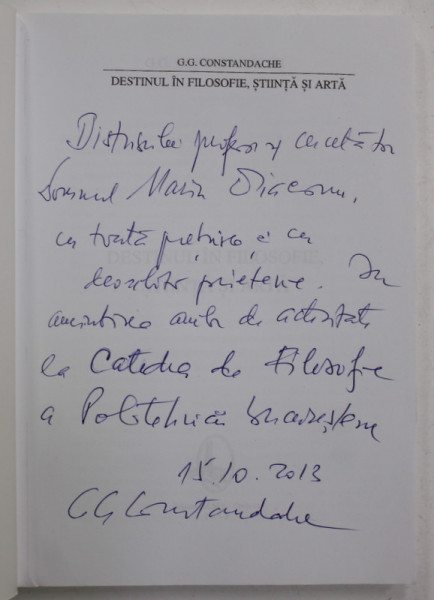 G.G. CONSTANDACHE
DESTINUL ÎN FILOSOFIE, ȘTIINȚĂ ȘI ARTĂ
Distinsului profesor și cercetător
Domnul Marin Diaconu,
cu toată prețuirea și cu
deosebită prietenie. În
amintirea anilor de activitate
la Catedra de Filosofie
a Politehnicii bucureștene
15.10.2013
GG Constandache